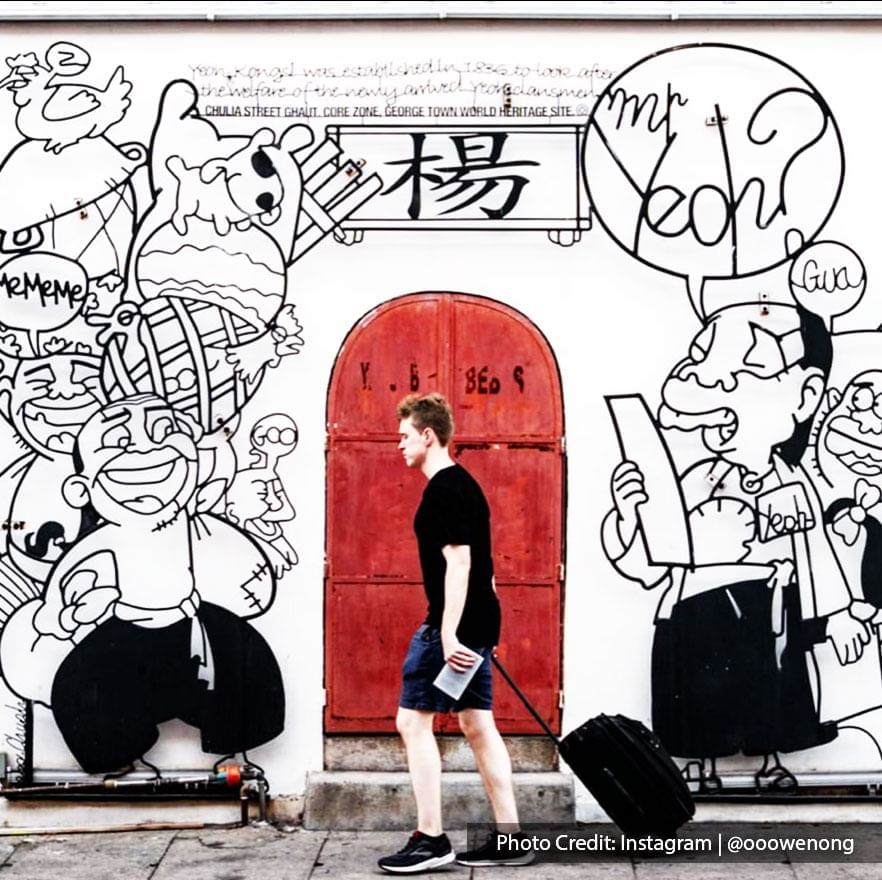 Yeoh Kongsi was established in 1836 to look after
the welfare of the newly arrived Yeoh clansmen
CHULIA STREET GHAUT, CORE ZONE, GEORGE TOWN WORLD HERITAGE SITE.
楊
mr
Yeoh?
MeMeMe
Gua
Yeoh
Photo Credit: Instagram | @ooowenong